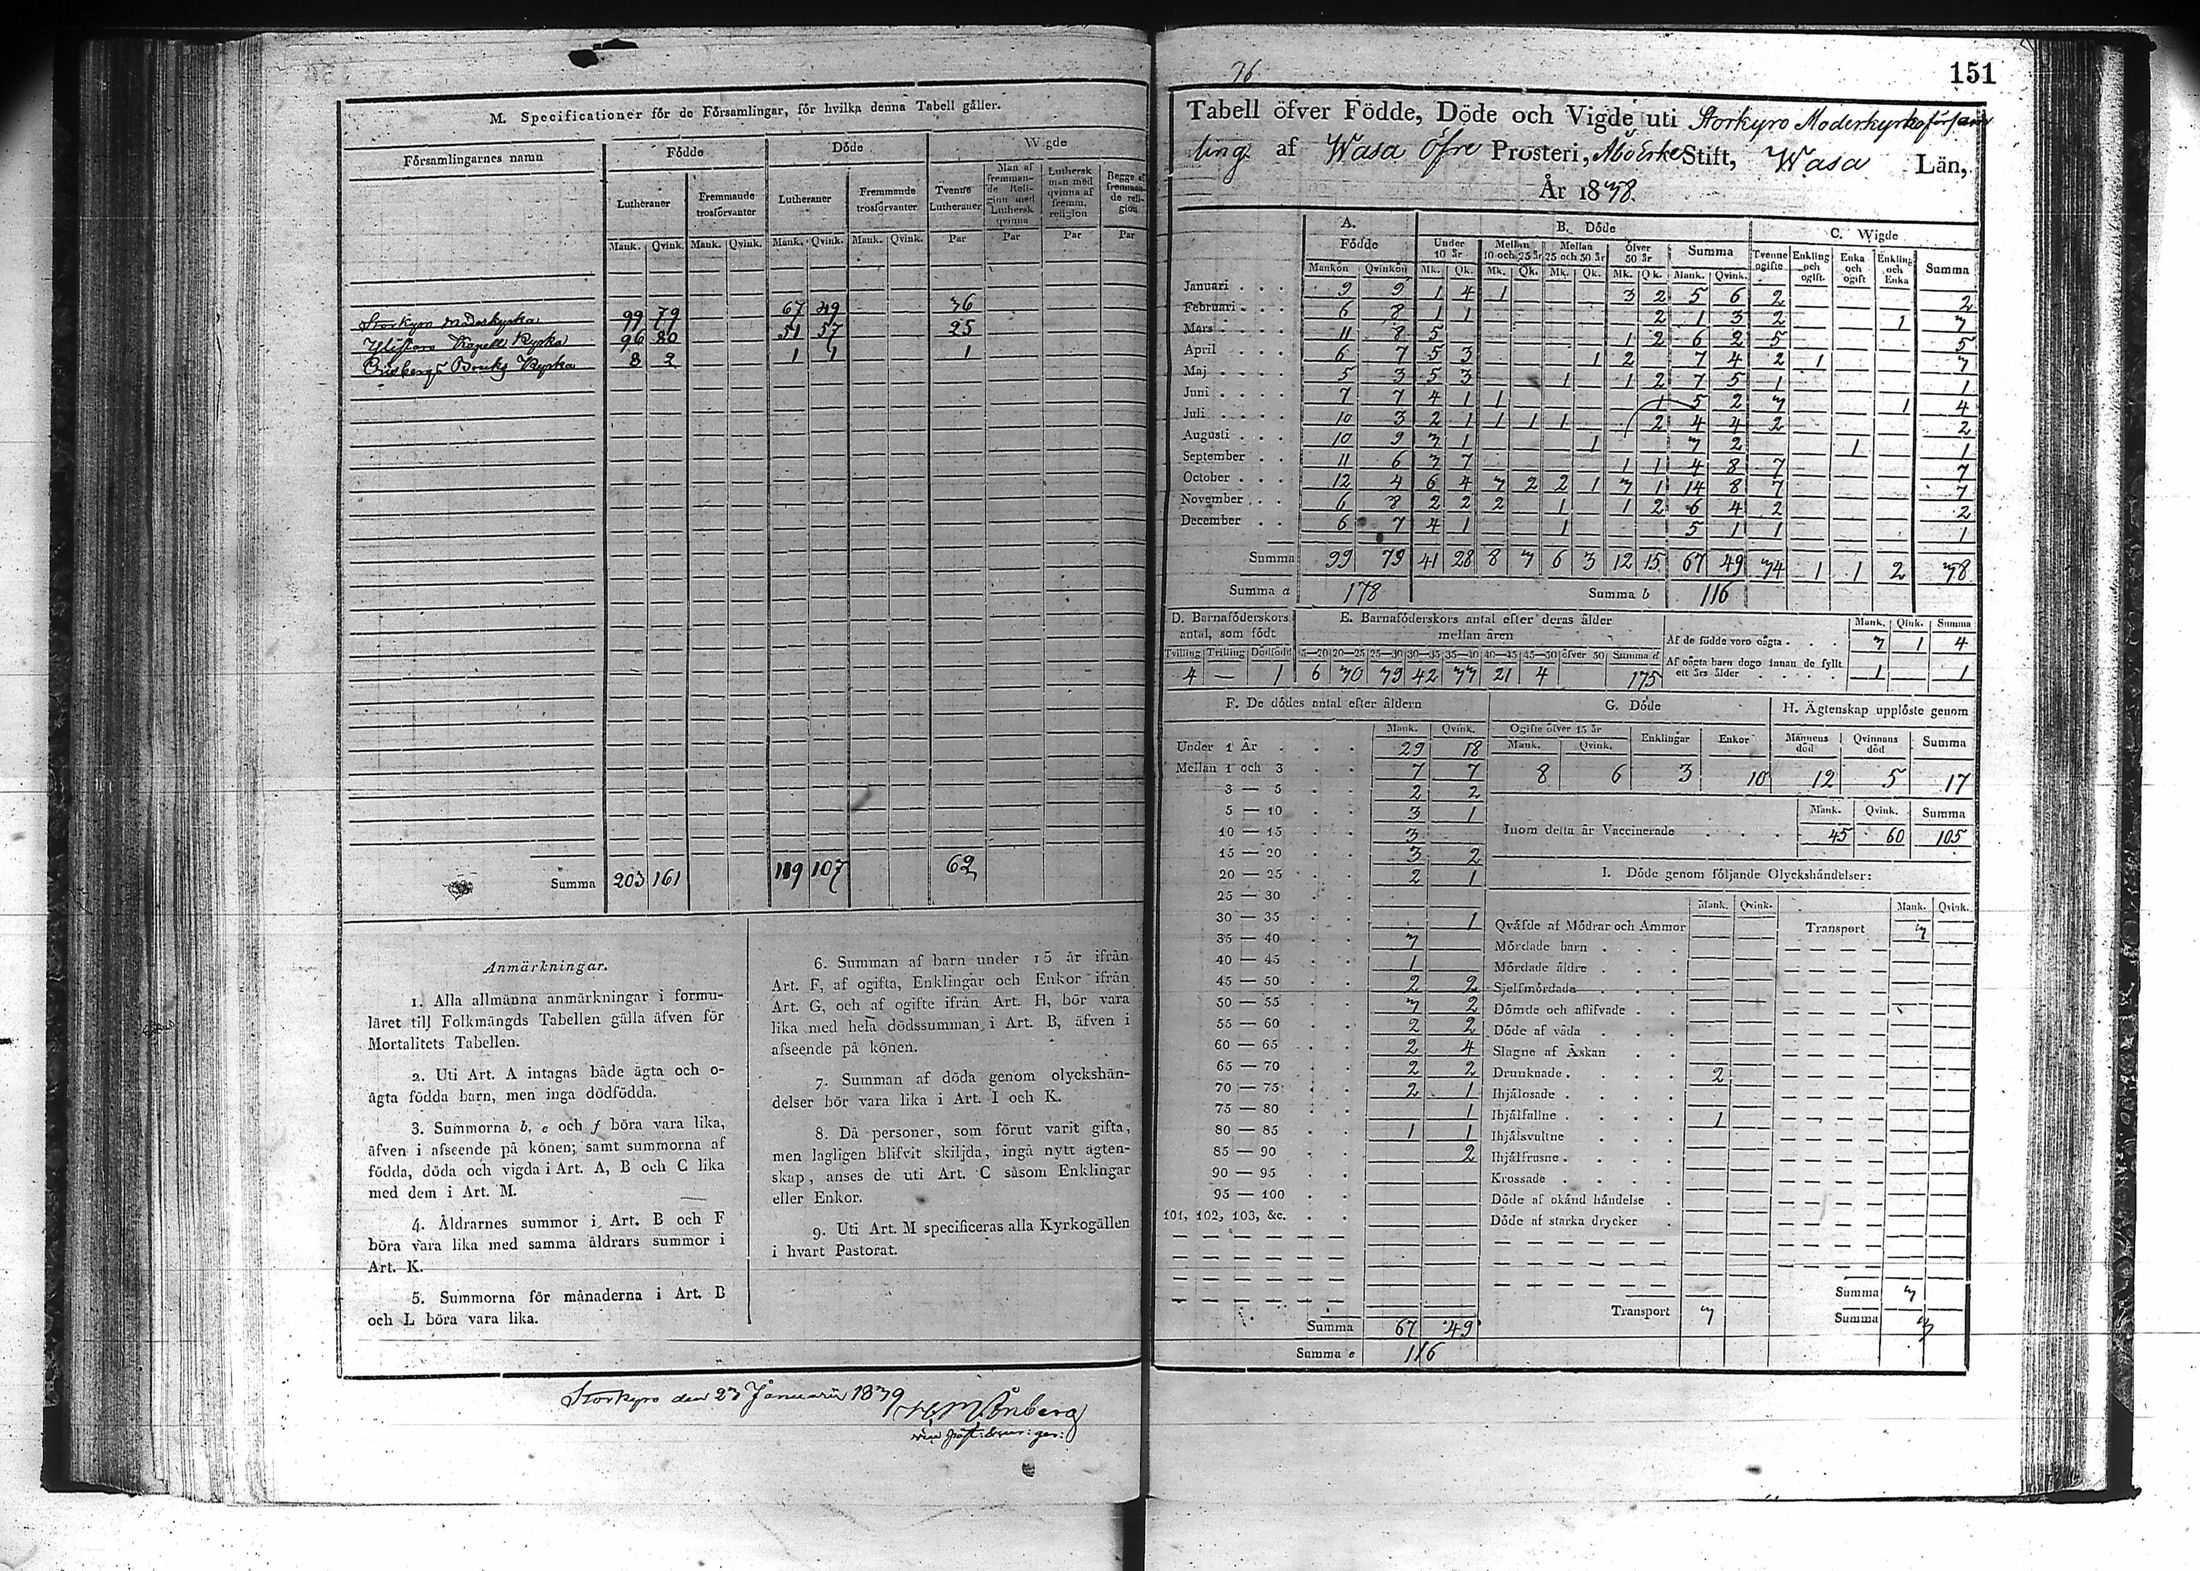 M. Specificationer för de Församlingar, för hvilka denna Tabell gäller.
Församlingarnes namn Födde Döde Wigde
Lutheraner Fremmande trosförvanter Lutheraner Fremmande trosförvanter Tvenne Lutheraner Man af fremmande Religion med Luthersk qvinna Luthersk man med qvinna af fremm. religion Begge af fremmande religion
Mank. Qvink. Mank. Qvink. Mank. Qvink. Mank. Qvink. Par Par Par Par
Storkyro Moderkyrka 99 79 67 49 36
Ylistaro Kapell Kyrka 96 80 51 57 25
Orisbergs Bruks Kyrka 8 2 1 1 1
Summa 203 161 119 107 62
Anmärkningar.
1. Alla allmänna anmärkningar i formu-
läret till Folkmängds Tabellen gälla äfven för
Mortalitets Tabellen.
2. Uti Art. A intagas både ägta och o-
ägta födda barn, men inga dödfödda.
3. Summorna b, e och f böra vara lika,
äfven i afseende på könen; samt summorna af
födda, döda och vigda i Art. A, B och C lika
med dem i Art. M.
4. Åldrarnes summor i Art. B och F
böra vara lika med samma åldrars summor i
Art. K.
5. Summorna för månaderna i Art. B
och L böra vara lika.
6. Summan af barn under 15 år ifrån
Art. F, af ogifta, Enklingar och Enkor ifrån
Art. G, och af ogifte ifrån Art. H, bör vara
lika med hela dödssumman i Art. B, äfven i
afseende på könen.
7. Summan af döda genom olyckshän-
delser bör vara lika i Art. I och K.
8. Då personer, som förut varit gifta,
men lagligen blifvit skiljda, ingå nytt ägten-
skap, anses de uti Art. C såsom Enklingar
eller Enkor.
9. Uti Art. M specificeras alla Kyrkogällen
i hvart Pastorat.
Storkyro den 23 Januarii 1839
76
151
Tabell öfver Födde, Döde och Vigde uti Storkyro Moderkyrkoförsam
ling af Wasa Öfre Prosteri, Åbo Erke Stift, Wasa Län,
År 1838.
A. Födde B. Döde C. Wigde
Under 10 år Mellan 10 och 25 år Mellan 25 och 50 år Öfver 50 år Summa Tvenne ogifte Enkling och ogift. Enka och ogift Enkling och Enka Summa
Mankön Qvinkön Mk. Qk. Mk. Qk. Mk. Qk. Mk. Qk. Mank. Qvink.
Januari 9 9 1 4 1 3 2 5 6 2 2
Februari 6 8 1 1 2 1 3 2 1 3
Mars 11 8 5 1 2 6 2 5 5
April 6 7 5 3 1 2 7 4 2 1 3
Maj 5 3 5 3 1 1 2 7 5 1 1
Juni 7 7 4 1 1 1 5 2 3 1 4
Juli 10 3 2 1 1 1 1 2 4 4 2 2
Augusti 10 9 3 1 1 3 2 1 1
September 11 6 3 7 1 1 4 8 7 7
October 12 4 6 4 3 2 2 1 3 1 14 8 7 7
November 6 8 2 2 2 1 1 2 6 4 2 2
December 6 7 4 1 1 5 1 1 1
Summa 99 79 41 28 8 3 6 3 12 15 67 49 34 1 1 2 38
Summa a 178 Summa b 116
D. Barnaföderskors antal, som födt
Tvilling Trilling Dödfödd
4 — 1
E. Barnaföderskors antal efter deras ålder mellan åren
15—20 20—25 25—30 30—35 35—40 40—45 45—50 öfver 50 Summa d
6 30 39 42 33 21 4 175
Mank. Qink. Summa
Af de födde voro oägta 3 1 4
Af oägta barn dogo innan de fyllt ett års ålder 1 1
F. De dödes antal efter åldern
Mank. Qvink.
Under 1 År 29 18
Mellan 1 och 3 7 7
3 — 5 2 2
5 — 10 3 1
10 — 15 3
15 — 20 3 2
20 — 25 2 1
25 — 30
30 — 35 1
35 — 40 3
40 — 45 1
45 — 50 2 2
50 — 55 3 2
55 — 60 2 2
60 — 65 2 4
65 — 70 2 2
70 — 75 2 1
75 — 80 1
80 — 85 1 1
85 — 90 2
90 — 95
95 — 100
101, 102, 103, &c.
Summa 67 49
Summa e 116
G. Döde
Ogifte öfver 15 år Enklingar Enkor
Mank. Qvink.
8 6 3 10
H. Ägtenskap upplöste genom
Männens död Qvinnans död Summa
12 5 17
Mank. Qvink. Summa
Inom detta år Vaccinerade 45 60 105
I. Döde genom följande Olyckshändelser:
Mank. Qvink. Mank. Qvink.
Qväfde af Mödrar och Ammor Transport 3
Mördade barn
Mördade äldre
Sjelfmördade
Dömde och aflifvade
Döde af våda
Slagne af Åskan
Drunknade 2
Ihjälosade
Ihjälfallne 1
Ihjälsvultne
Ihjälfrusne
Krossade
Döde af okänd händelse
Döde af starka drycker
Summa 3
Transport 3 Summa 3